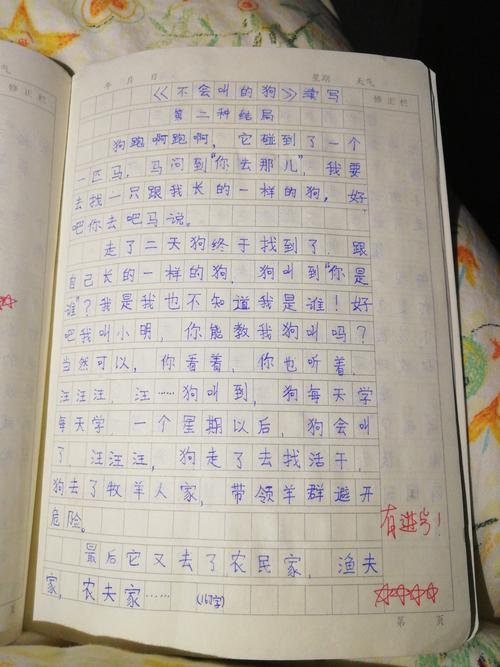 气
修正栏
年 月 日 星期 天气
修正栏
《不会叫的狗》续写
第二种结局
狗跑啊跑啊，它碰到了一个
一匹马，马问到“你去那儿”，我要
去找一只跟我长的一样的狗，好
吧你去吧马说。
走了二天狗终于找到了 跟
自己长的一样的狗，狗叫到“你是
谁”？我是我也不知道我是谁！好
吧我叫小明，你能教我狗叫吗？
当然可以，你看着，你也听着，
汪汪汪，汪……狗叫到，狗每天学
每天学，一个星期以后，狗会叫
了，汪汪汪，狗走了去找活干，
狗去了牧羊人家，带领羊群避开
危险。
有进步！
最后它又去了农民家，渔夫
家，农夫家…… （167字）
第 页
页